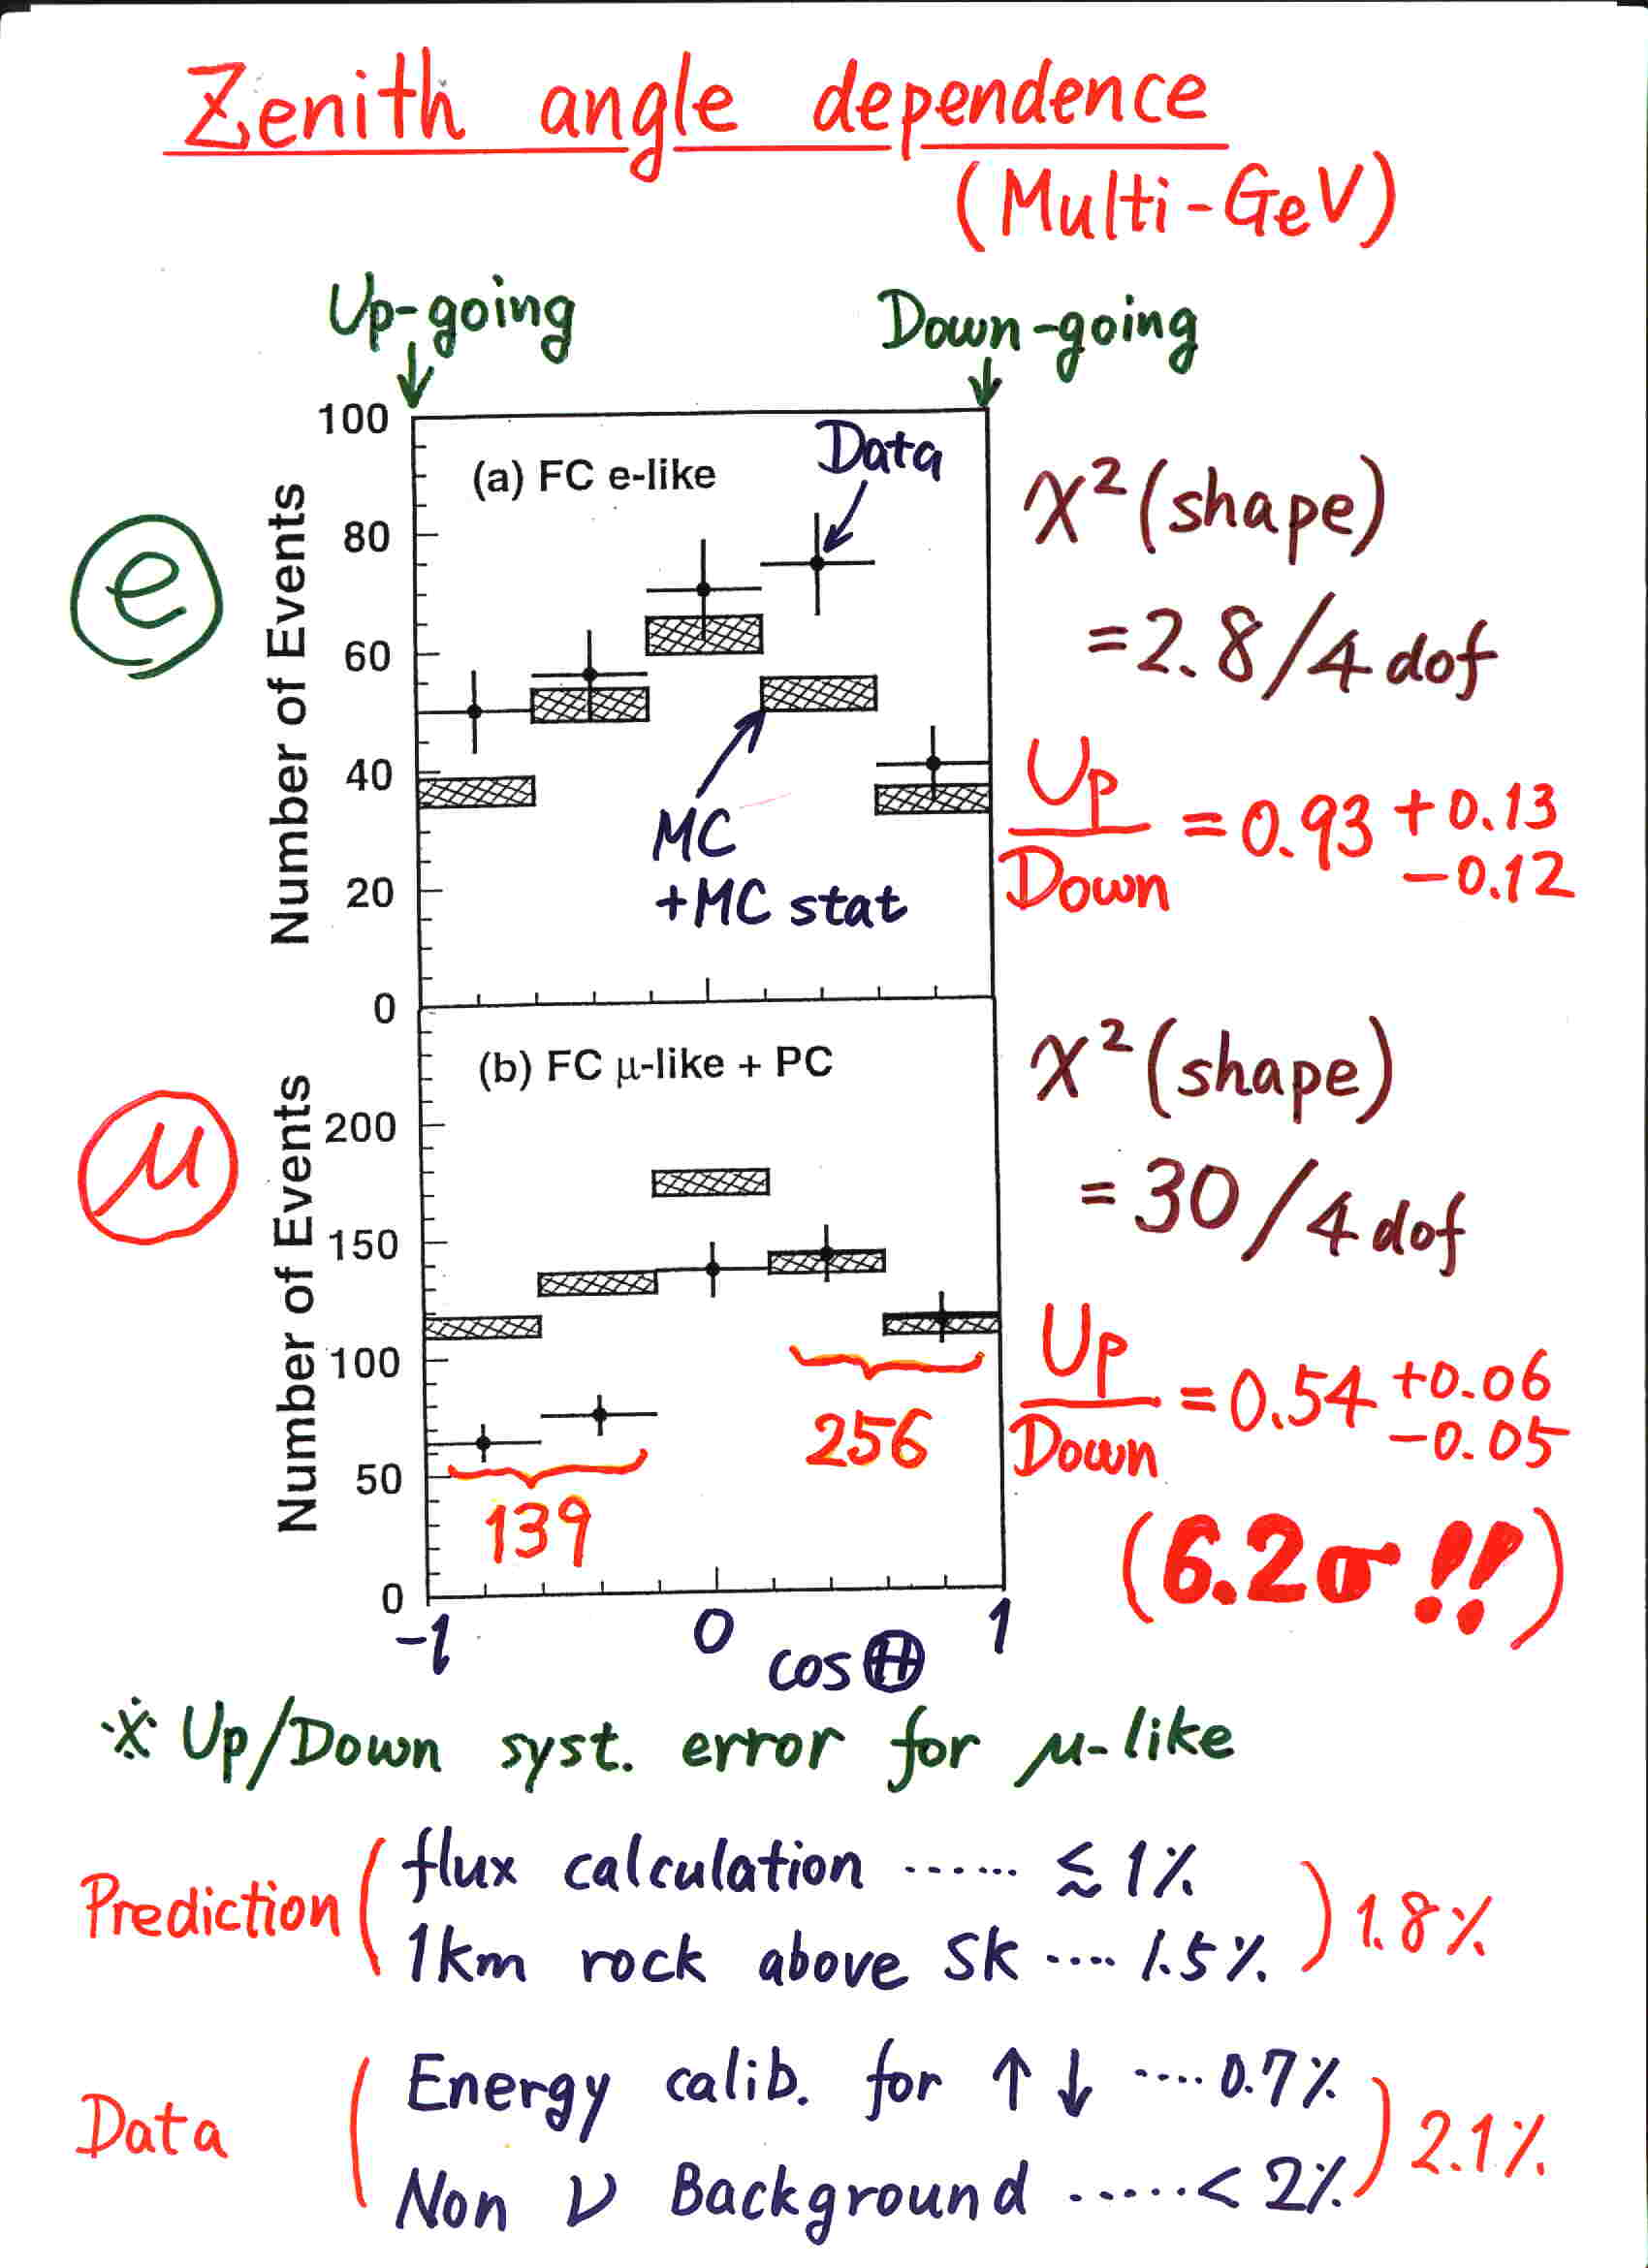 Zenith angle dependence
(Multi-GeV)
Up-going
Down-going
100
80
60
40
20
0
Number of Events
(a) FC e-like
Data
MC
+MC stat
e
χ²(shape)
= 2.8/4 dof
Up
Down
= 0.93 +0.13
-0.12
200
150
100
50
0
Number of Events
(b) FC μ-like + PC
μ
139
256
χ²(shape)
= 30/4 dof
Up
Down
= 0.54 +0.06
-0.05
(6.2σ!!)
-1
0
1
cosΘ
※ Up/Down syst. error for μ-like
Prediction
flux calculation ...... ≲ 1%
1km rock above SK .... 1.5%
1.8%
Data
Energy calib. for ↑ ↓ .... 0.7%
Non ν Background ...... < 2%
2.1%